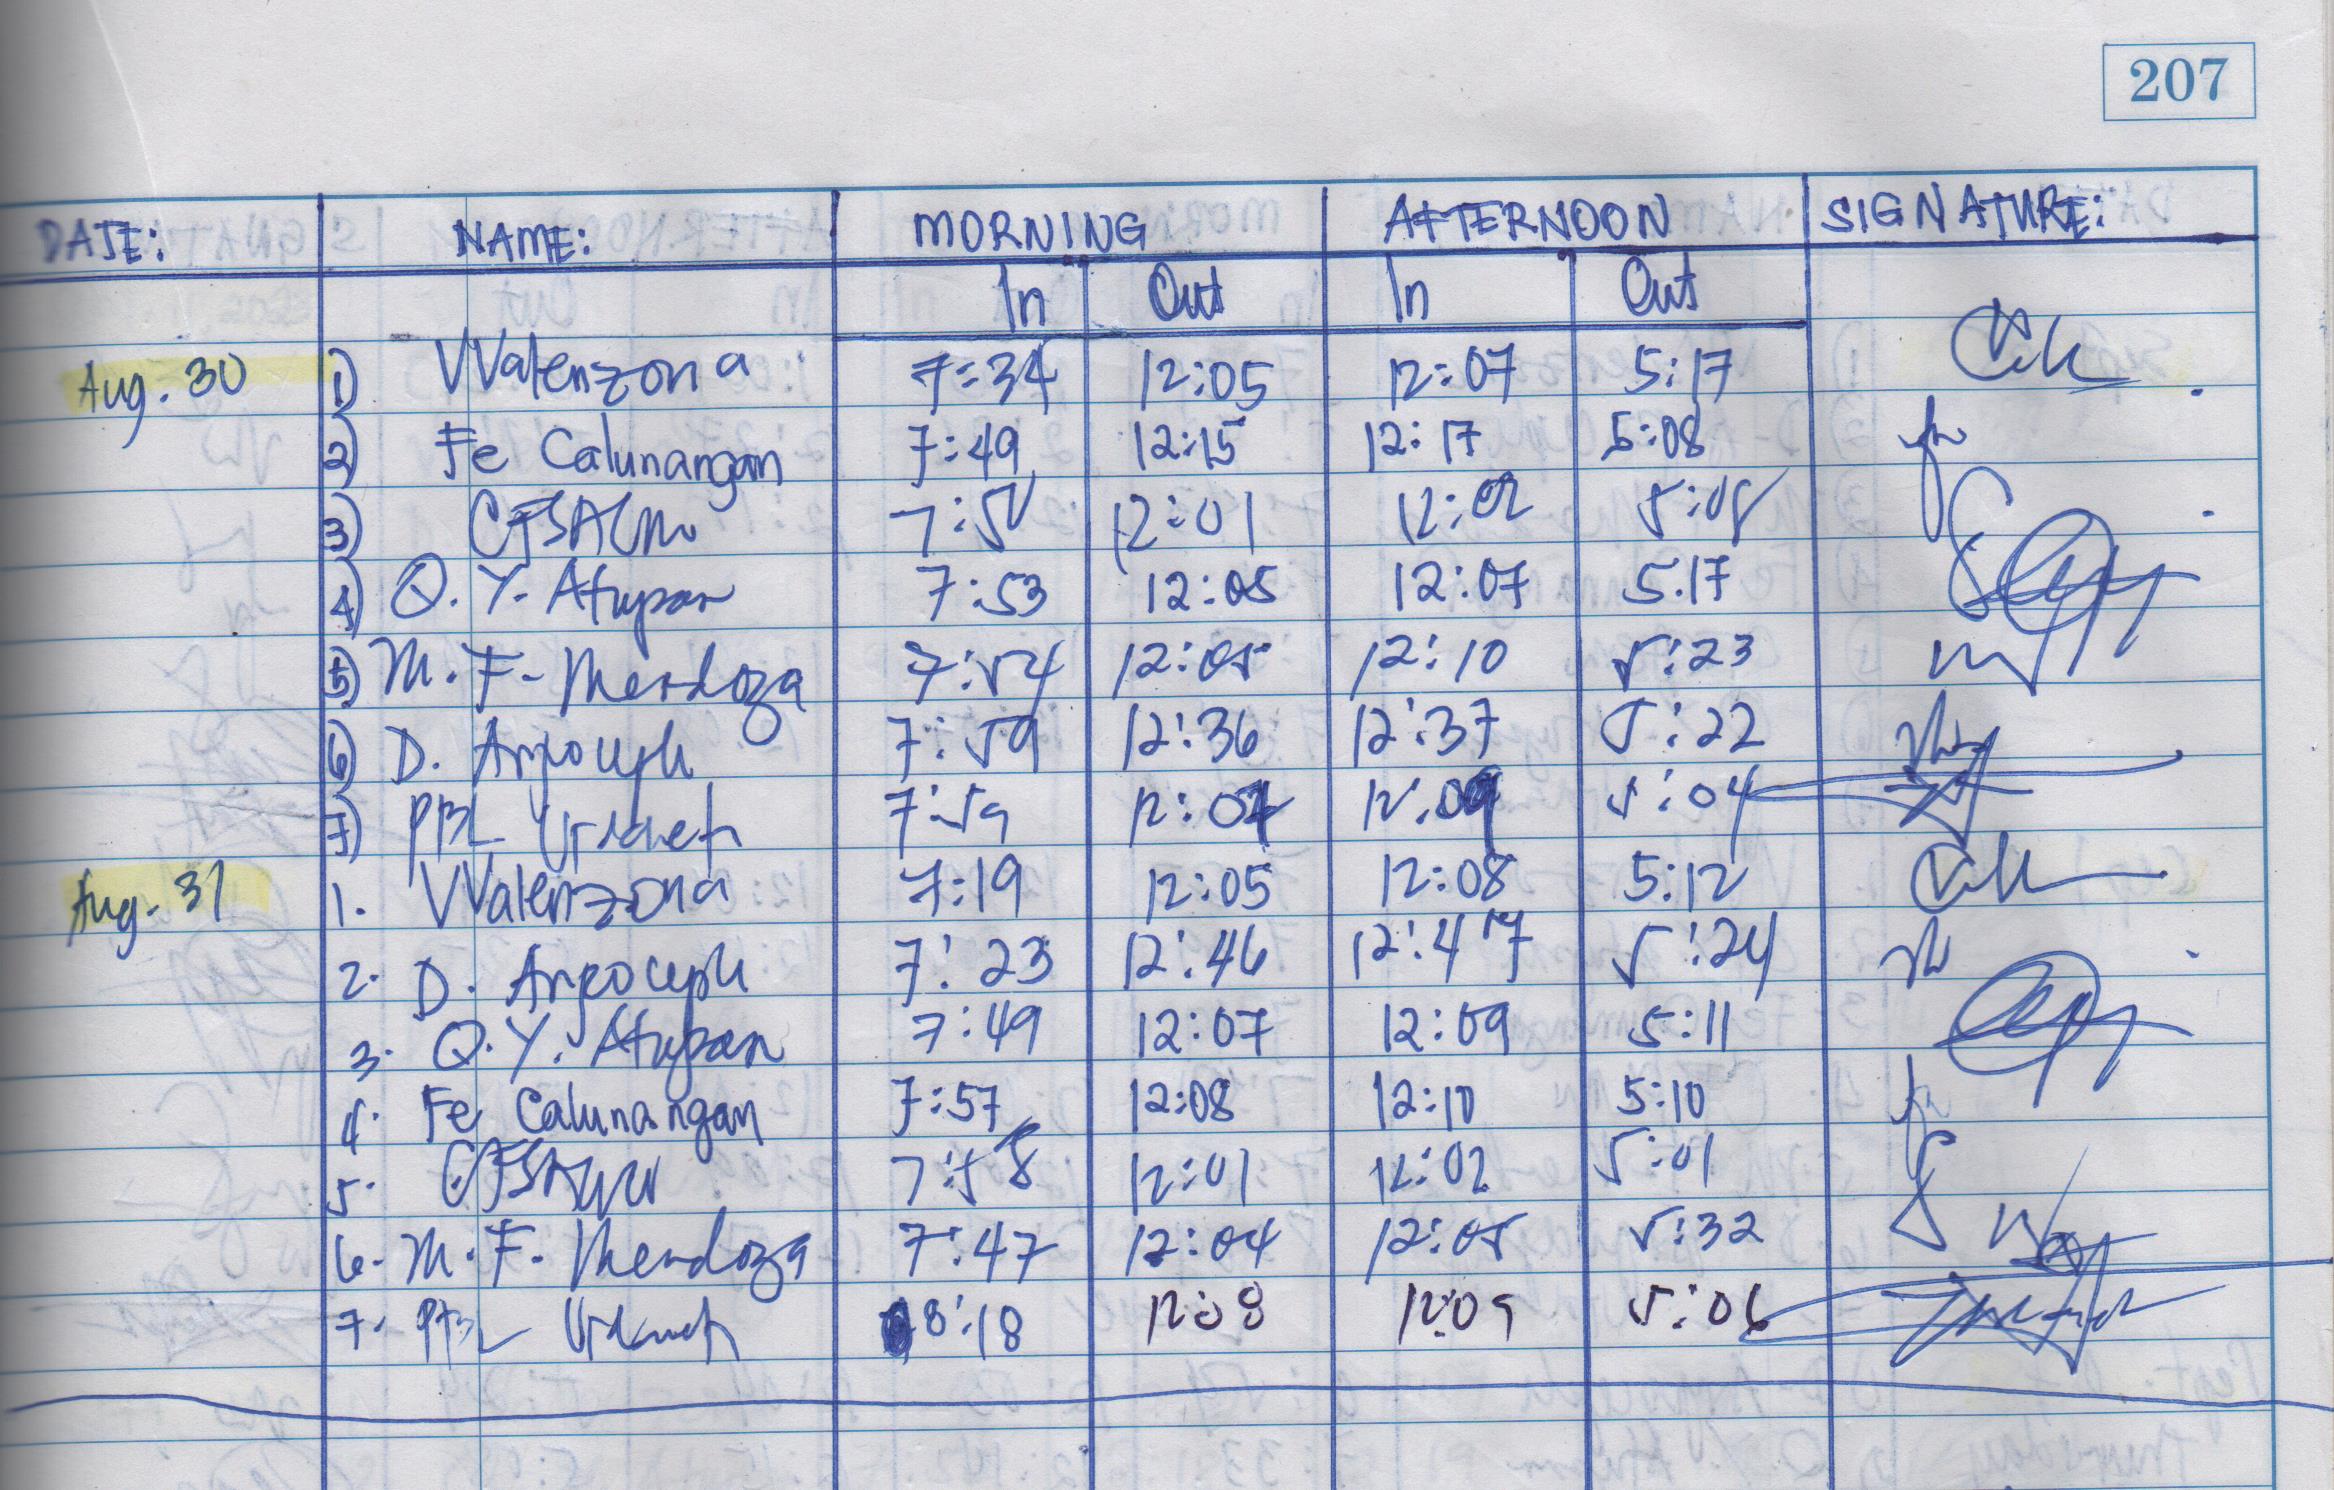 207
DATE: NAME: MORNING AFTERNOON SIGNATURE:
In Out In Out
Aug. 30 1) VValenzona 7:34 12:05 12:07 5:17
2) Fe Calunangan 7:49 12:15 12:17 5:08
3) 12:01 12:02
4) Q. Y. Atupan 7:53 12:05 12:07 5.17
5) M. F. Mendoza 7:54 12:05 12:10 5:23
6) D. 7:59 12:36 12:37 5:22
7) PBL 7:59 12:07 12:09 5:04
Aug. 31 1. VValenzona 7:19 12:05 12:08 5:12
2. D. 7:23 12:46 12:47 5:24
3. Q. Y. Atupan 7:49 12:07 12:09 5:11
4. Fe Calunangan 7:57 12:08 12:10 5:10
5. 7:58 12:01 12:02 5:01
6. M. F. Mendoza 7:47 12:04 12:05 5:32
7. PBL 8:18 12:08 12:09 5:06